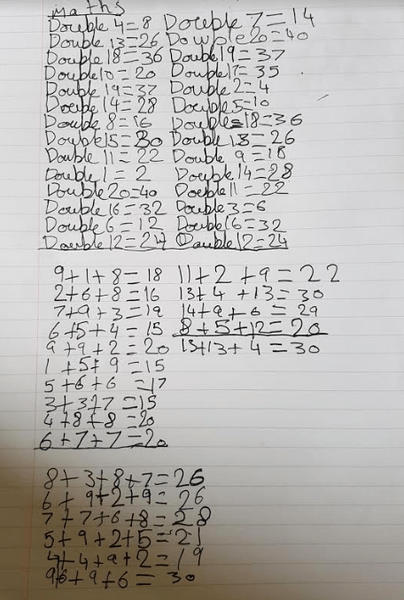 maths
Double 4=8 Double 7=14
Double 13=26 Double 20=40
Double 18=36 Double 19=37
Double 10=20 Double 17=35
Double 19=37 Double 2=4
Double 14=28 Double 5=10
Double 8=16 Double 18=36
Double 15=30 Double 13=26
Double 11=22 Double 9=18
Double 1=2 Double 14=28
Double 20=40 Double 11=22
Double 16=32 Double 3=6
Double 6=12 Double 16=32
Double 12=24 Double 12=24
9+1+8=18 11+2+9=22
2+6+8=16 13+4+13=30
7+9+3=19 14+9+6=29
6+5+4=15 8+5+12=20
9+9+2=20 13+13+4=30
1+5+9=15
5+6+6=17
3+3+7=15
4+8+8=20
6+7+7=20
8+3+8+7=26
6+9+2+9=26
7+7+6+8=28
5+9+2+5=21
4+4+9+2=19
96+9+6=30